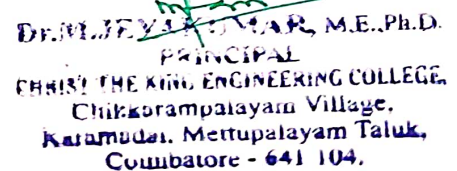 Dr.M.JEYAKUMAR, M.E.,Ph.D.
PRINCIPAL
CHRIST THE KING ENGINEERING COLLEGE,
Chikkarampalayam Village,
Karamadai, Mettupalayam Taluk,
Coimbatore - 641 104.